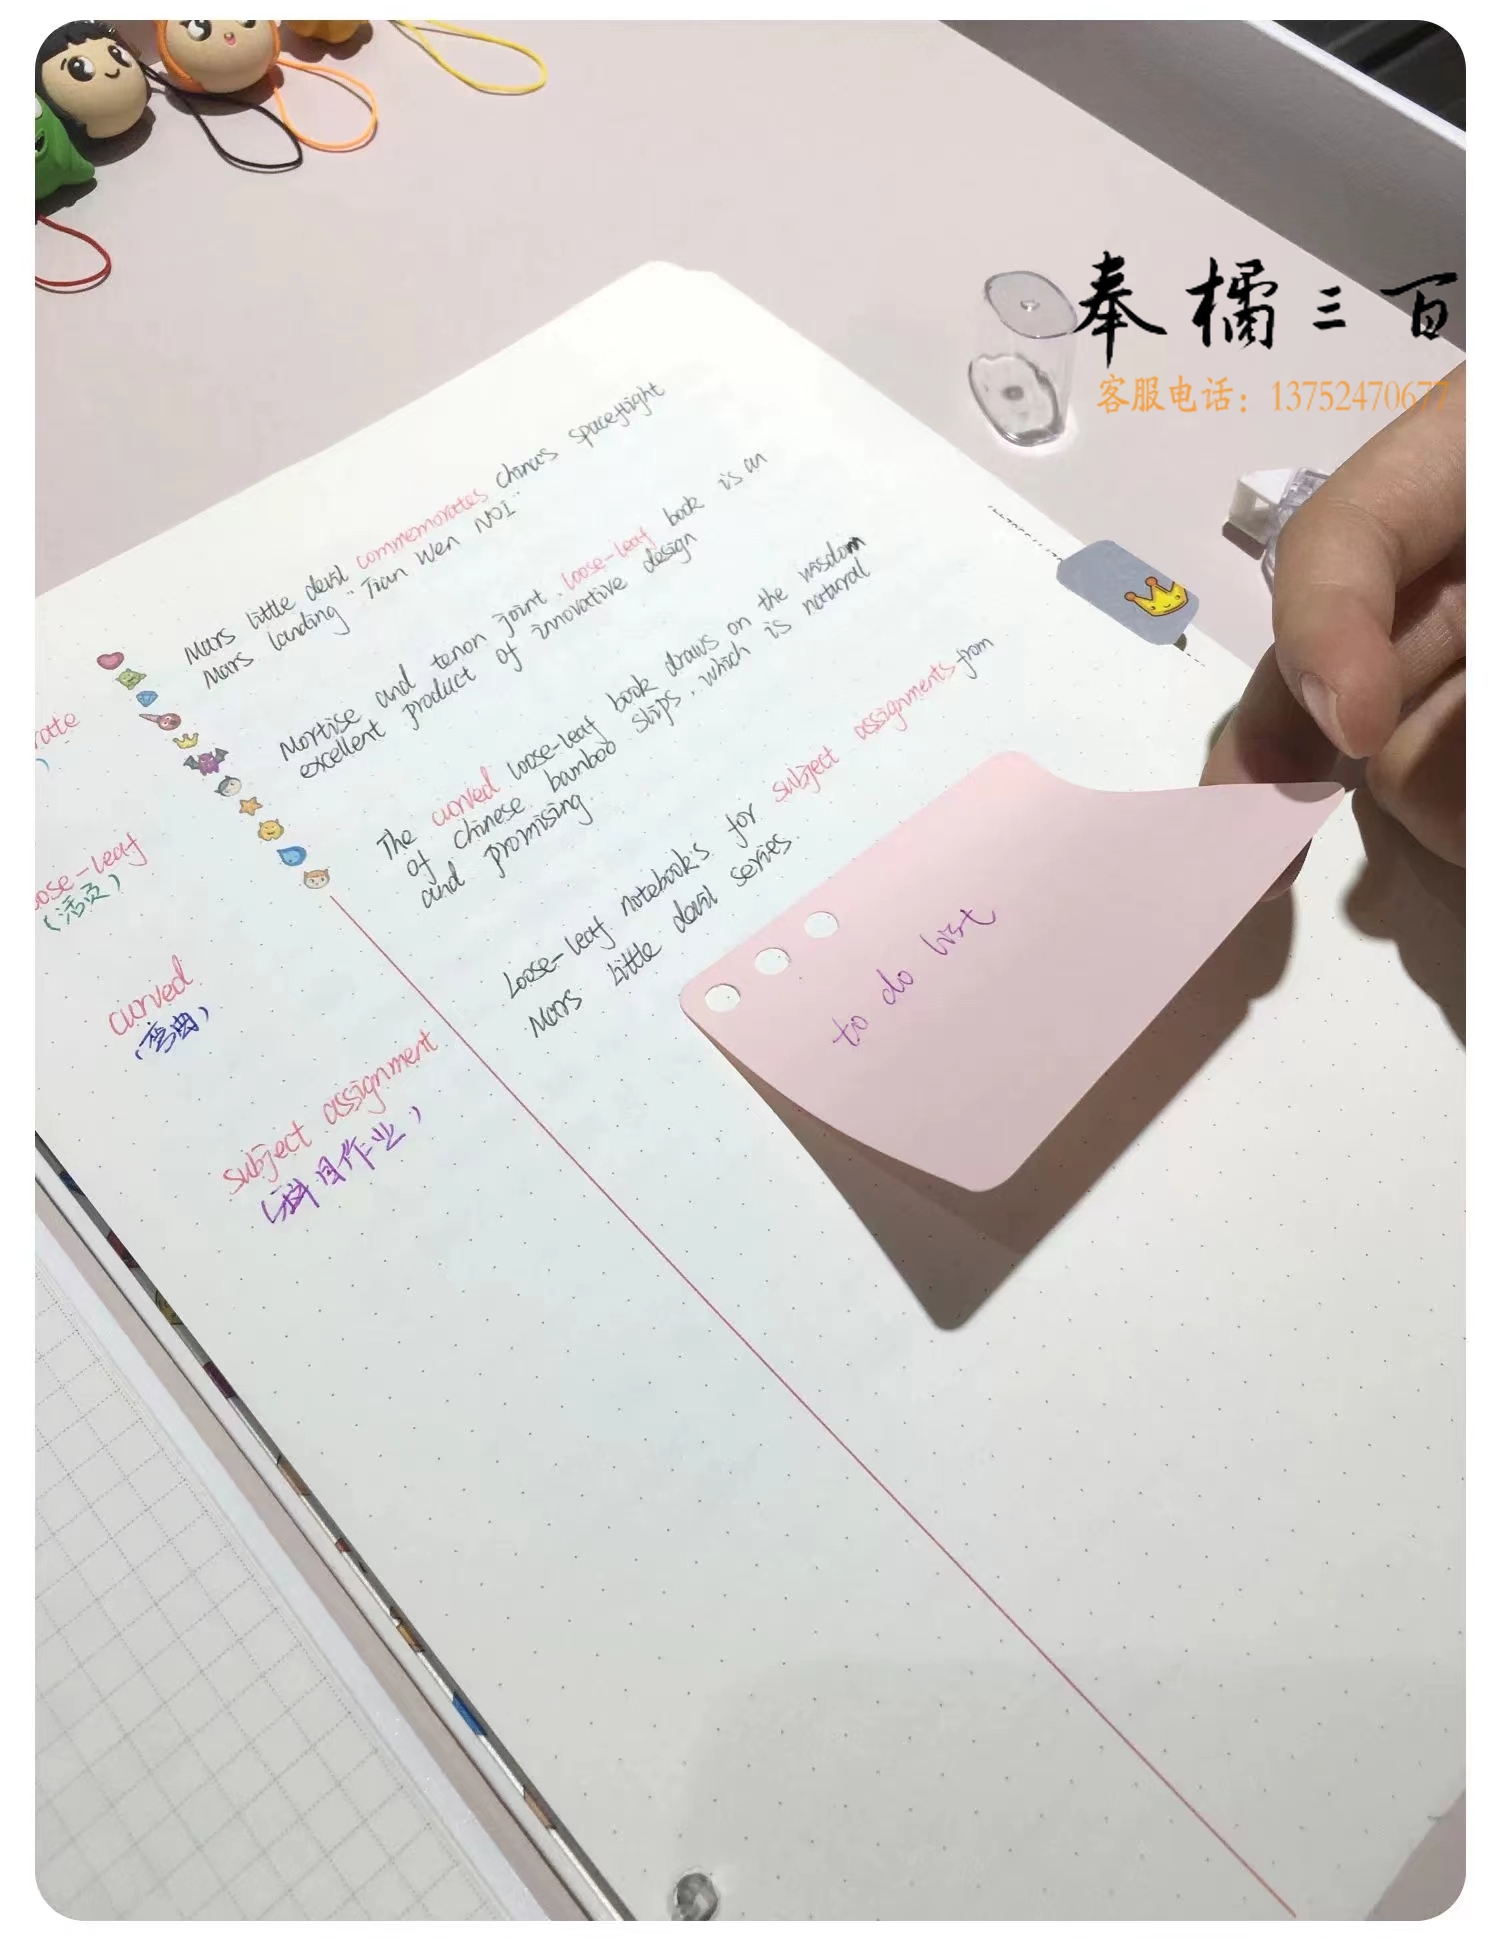 奉橘三百
客服电话：13752470677
Mars little devil commemorates China's spaceflight
Mars landing "Tian Wen NO1"
Mortise and tenon joint loose-leaf book is an
excellent product of innovative design
The curved loose-leaf book draws on the wisdom
of chinese bamboo slips, which is natural
and promising
Loose-leaf notebook's for subject assignments from
Mars little devil series
rate
oose-leaf
(活页)
curved
(弯曲)
subject assignment
(科目作业)
to do list